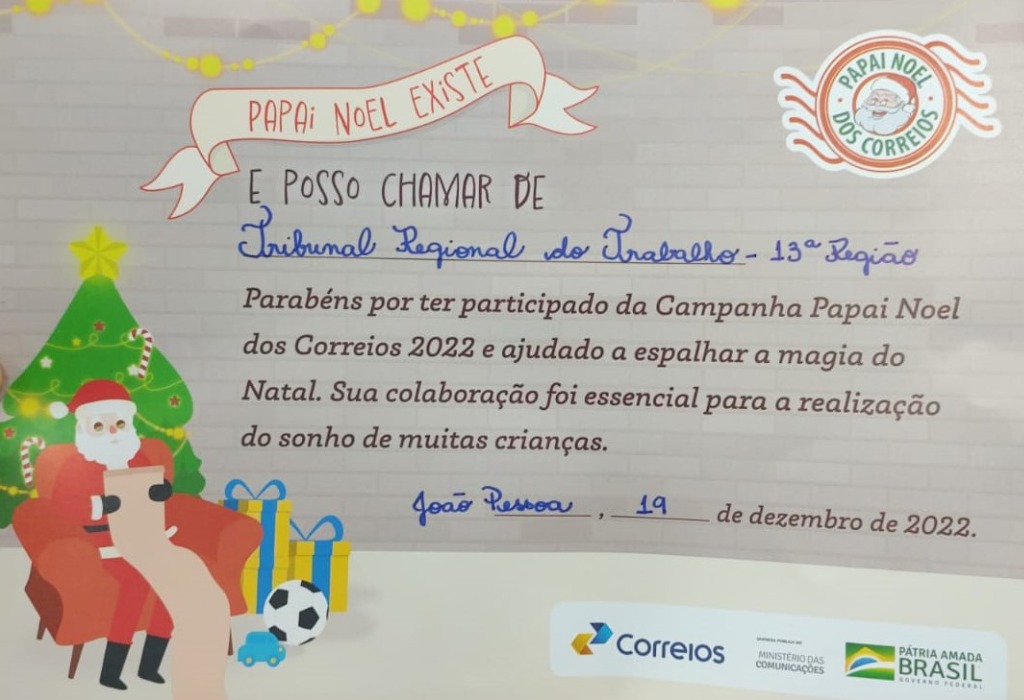 PAPAI NOEL EXISTE
PAPAI NOEL
DOS CORREIOS
E POSSO CHAMAR DE
Tribunal Regional do Trabalho - 13ª Região
Parabéns por ter participado da Campanha Papai Noel
dos Correios 2022 e ajudado a espalhar a magia do
Natal. Sua colaboração foi essencial para a realização
do sonho de muitas crianças.
João Pessoa, 19 de dezembro de 2022.
Correios
EMPRESA PÚBLICA DO
MINISTÉRIO DAS
COMUNICAÇÕES
PÁTRIA AMADA
BRASIL
GOVERNO FEDERAL